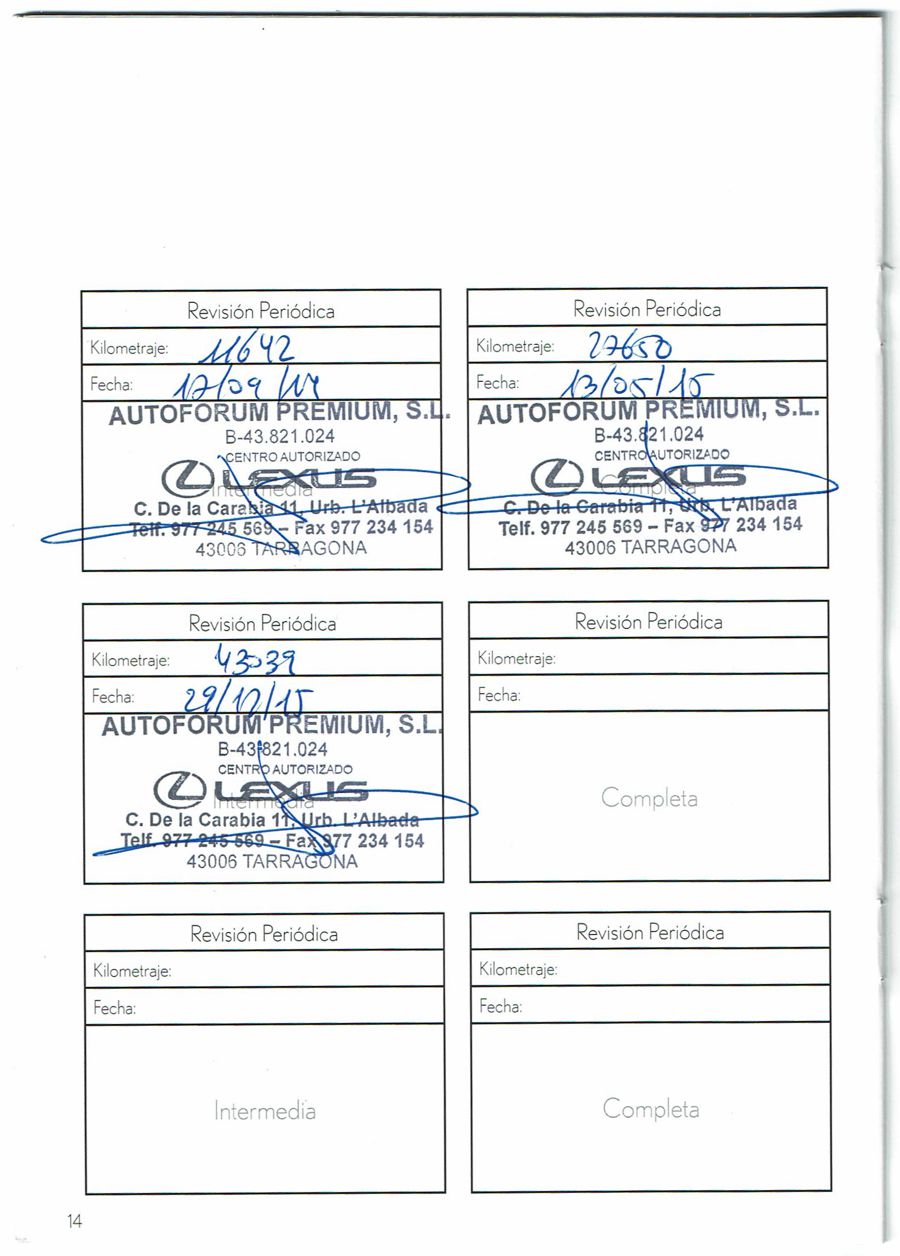 Revisión Periódica
Kilometraje: 11642
Fecha: 17/09/14
AUTOFORUM PREMIUM, S.L.
B-43.821.024
CENTRO AUTORIZADO
LEXUS
Intermedia
C. De la Carabia 11, Urb. L'Albada
Telf. 977 245 569 – Fax 977 234 154
43006 TARRAGONA
Revisión Periódica
Kilometraje: 27650
Fecha: 13/05/15
AUTOFORUM PREMIUM, S.L.
B-43.821.024
CENTRO AUTORIZADO
LEXUS
Completa
C. De la Carabia 11, Urb. L'Albada
Telf. 977 245 569 – Fax 977 234 154
43006 TARRAGONA
Revisión Periódica
Kilometraje: 43039
Fecha: 29/12/15
AUTOFORUM PREMIUM, S.L.
B-43.821.024
CENTRO AUTORIZADO
LEXUS
Intermedia
C. De la Carabia 11, Urb. L'Albada
Telf. 977 245 569 – Fax 977 234 154
43006 TARRAGONA
Revisión Periódica
Kilometraje:
Fecha:
Completa
Revisión Periódica
Kilometraje:
Fecha:
Intermedia
Revisión Periódica
Kilometraje:
Fecha:
Completa
14